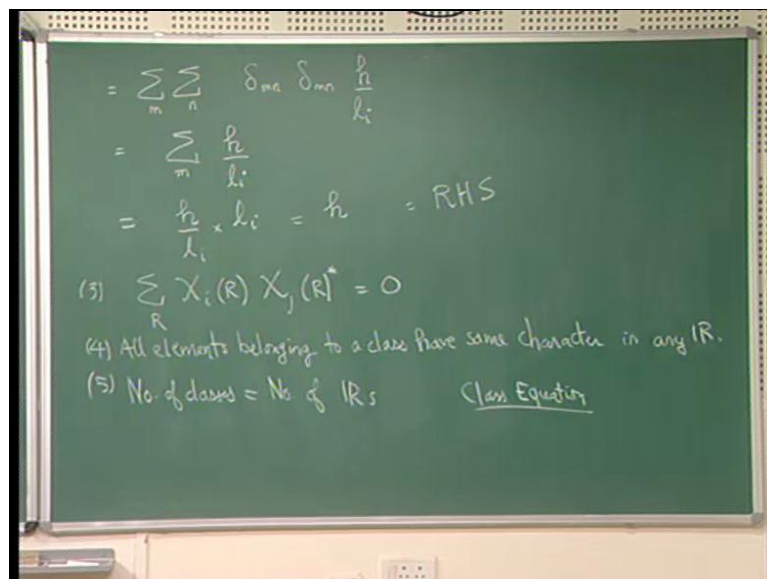 = Σ_m Σ_n δ_mn δ_mn h/l_i
= Σ_m h/l_i
= h/l_i × l_i = h = RHS
(3) Σ_R χ_i(R) χ_j(R)* = 0
(4) All elements belonging to a class have same character in any IR.
(5) No. of classes = No. of IRs Class Equation